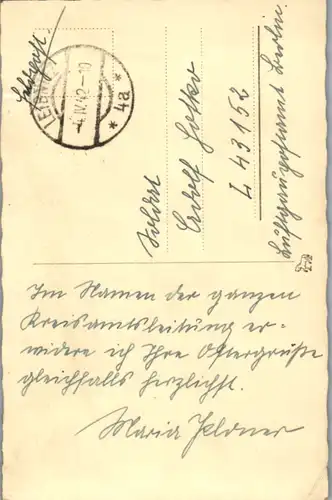 Feldpost.
4a
Soldat
Rudolf
L 43152
Luftgaupostamt Berlin.
Im Namen der ganzen
Kreisamtsleitung er-
widere ich Ihre Ostergrüße
gleichfalls herzlichst.
Maria